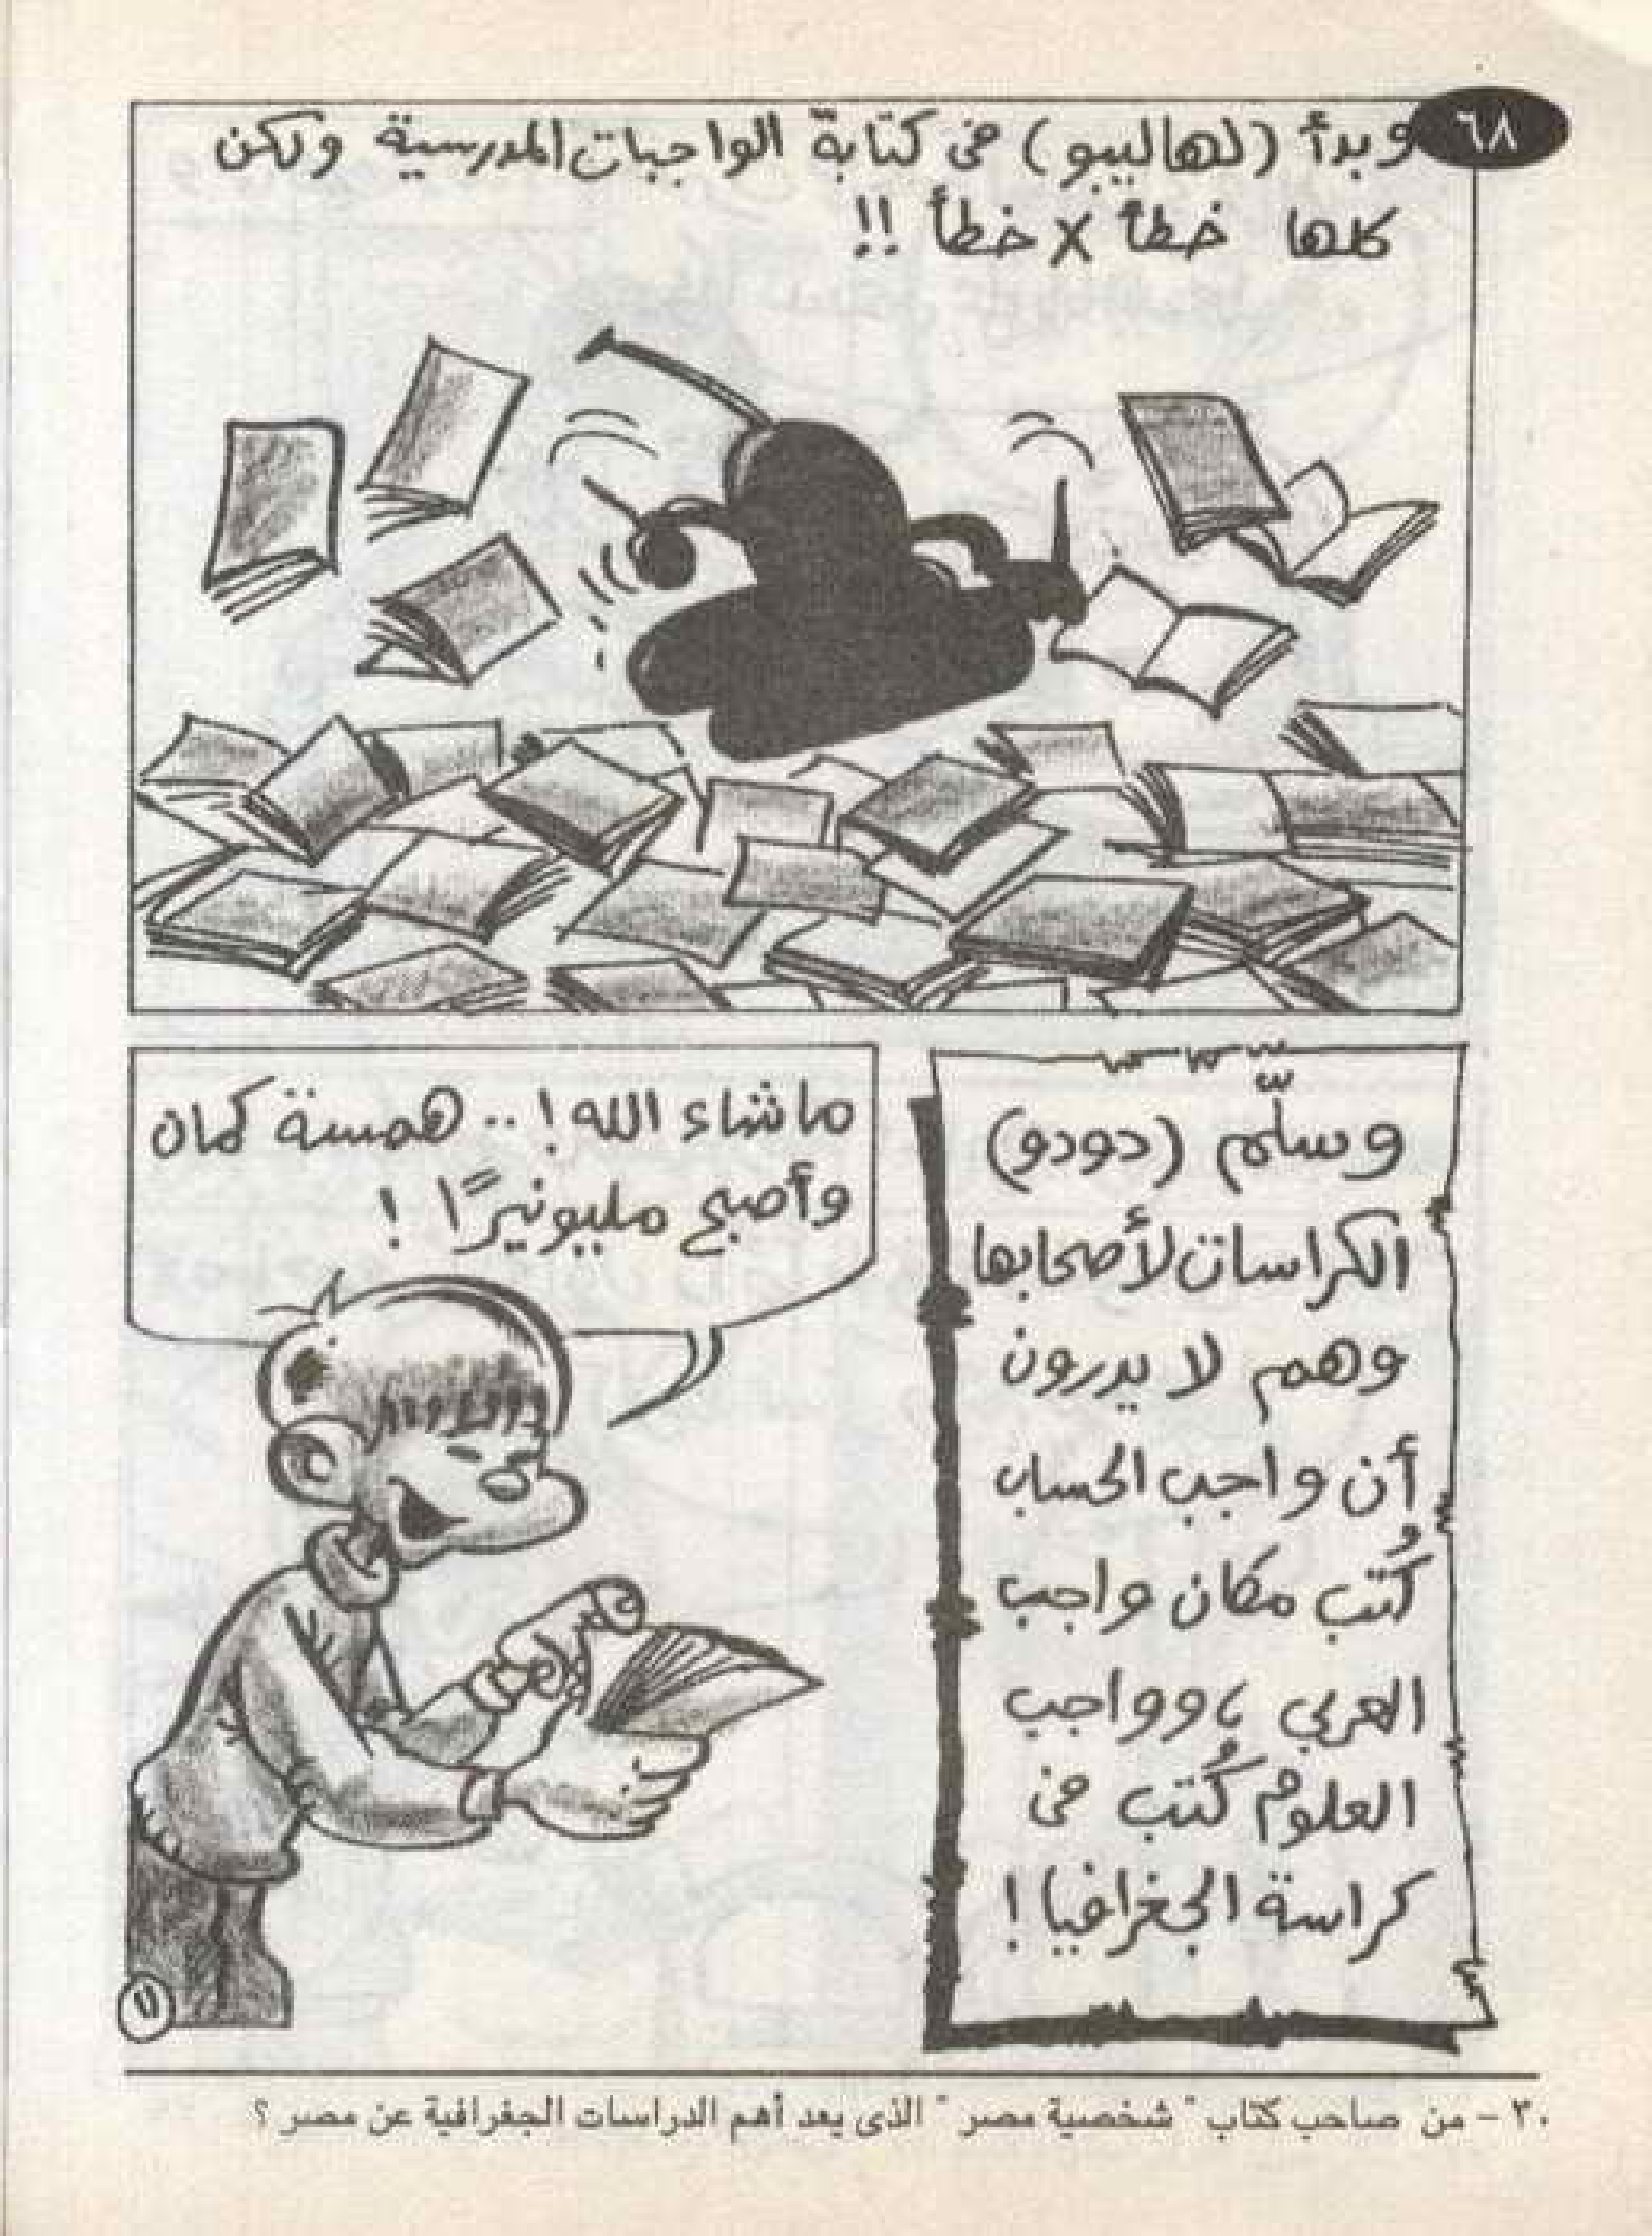 ٦٨
وبدأ (لهاليبو) فى كتابة الواجبات المدرسية ولكن
كلها خطأ × خطأ !!
وسلّم (دودو)
الكراسات لأصحابها
وهم لا يدرون
أن واجب الحساب
كُتب مكان واجب
العربى ، وواجب
العلوم كُتب فى
كراسة الجغرافيا !
ما شاء الله ! .. همسة كمان
وأصبح مليونيرًا !
٣٠ - من صاحب كتاب " شخصية مصر " الذى يعد أهم الدراسات الجغرافية عن مصر ؟